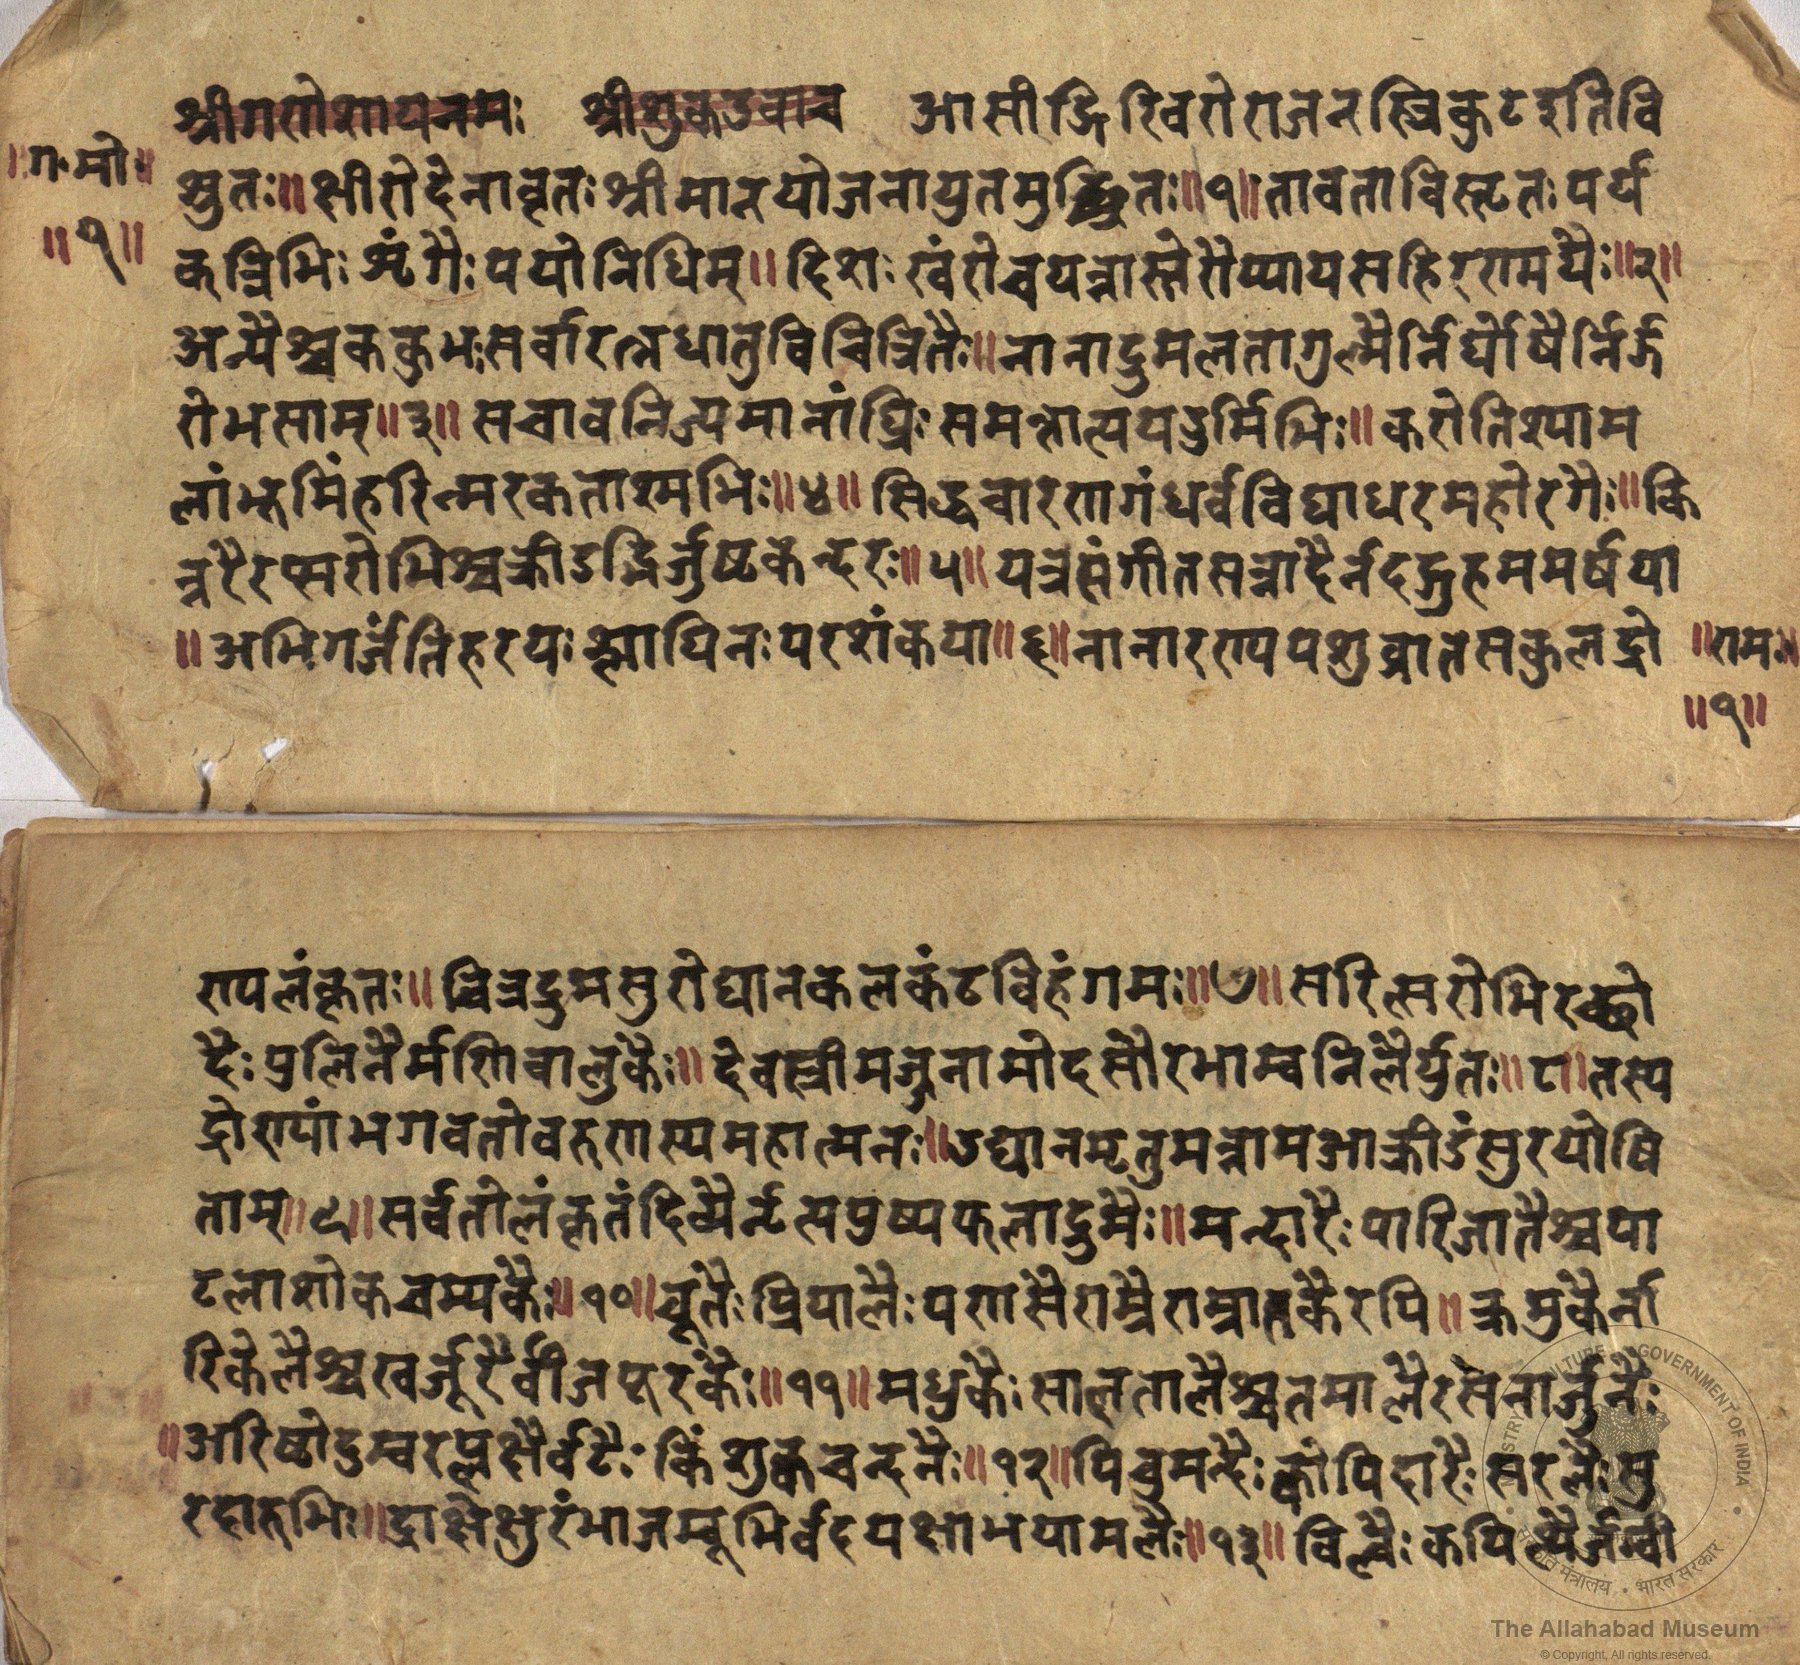 श्रीगणेशायनमः श्रीशुकउवाच आसीद्गिरिवरोराजनस्त्रिकुटइतिवि
॥ग॰मो॰॥
श्रुतः॥क्षीरोदेनावृतःश्रीमान्योजनायुतमुच्छ्रितः॥१॥तावताविस्तृतःपर्य
॥१॥
कत्रिभिःशृंगैःपयोनिधिम्॥दिशःखंरोचयन्नास्तेरौप्यायसहिरण्मयैः॥२॥
अन्यैश्चककुभःसर्वारत्नधातुविचित्रितैः॥नानाद्रुमलतागुल्मैर्निर्घोषैर्निर्ज
रांभसाम्॥३॥सचावनिज्यमानांघ्रिःसमन्तात्पयउर्मिभिः॥करोतिश्याम
लांभूमिंहरिन्मरकताश्मभिः॥४॥सिद्धचारणगंधर्वविद्याधरमहोरगैः॥किं
न्नरैरप्सरोभिश्चक्रीडद्भिर्जुष्टकन्दरः॥५॥यत्रसंगीतसन्नादैर्नदद्गुहममर्षया
॥अभिगर्जंतिहरयःश्लाघिनःपरशंकया॥६॥नानारण्यपशुव्रातसकुलद्रो
॥राम॥
॥१॥
ण्यलंकृतः॥चित्रद्रुमसुरोद्यानकलकंठविहंगमः॥७॥सरित्सरोभिरच्छो
दैःपुलिनैर्मणिवालुकैः॥देवस्त्रीमज्जनामोदसौरभाम्बनिलैर्युतः॥८॥तस्य
द्रोण्यांभगवतोवरुणस्यमहात्मनः॥उद्यानमृतुमन्नामआक्रीडंसुरयोषि
ताम्॥९॥सर्वतोलंकृतंदिव्यैर्नित्यपुष्पफलाद्रुमैः॥मन्दारैःपारिजातैश्चपा
टलाशोकचम्पकैः॥१०॥चूतैःप्रियालैःपणसैराम्रैराम्रातकैरपि॥क्रमुकैर्ना
रिकेलैश्चखर्जूरैर्वीजपूरकैः॥११॥मधुकैःसालतालैश्चतमालैरसनार्जुनैः
॥अरिष्टोदुम्बरप्लक्षैर्वटैःकिंशुकचन्दनैः॥१२॥पिचुमन्दैःकोविदारैःसरलैःसु
रदारुभिः॥द्राक्षेक्षुरंभाजम्बूभिर्वदर्यक्षाभयामलैः॥१३॥विल्वैःकपित्थैर्जम्बी
The Allahabad Museum
© Copyright, All rights reserved.